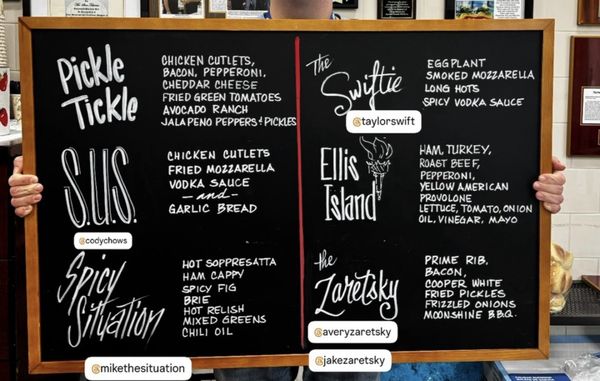 Pickle
Tickle
CHICKEN CUTLETS,
BACON, PEPPERONI,
CHEDDAR CHEESE
FRIED GREEN TOMATOES
AVOCADO RANCH
JALAPENO PEPPERS & PICKLES
S.U.S.
CHICKEN CUTLETS
FRIED MOZZARELLA
VODKA SAUCE
-and-
GARLIC BREAD
@codychows
Spicy
Situation
HOT SOPPRESATTA
HAM CAPPY
SPICY FIG
BRIE
HOT RELISH
MIXED GREENS
CHILI OIL
@mikethesituation
the
Swiftie
EGGPLANT
SMOKED MOZZARELLA
LONG HOTS
SPICY VODKA SAUCE
@taylorswift
Ellis
Island
HAM, TURKEY,
ROAST BEEF,
PEPPERONI,
YELLOW AMERICAN
PROVOLONE
LETTUCE, TOMATO, ONION
OIL, VINEGAR, MAYO
the
Zaretsky
PRIME RIB,
BACON,
COOPER WHITE
FRIED PICKLES
FRIZZLED ONIONS
MOONSHINE B.B.Q.
@averyzaretsky
@jakezaretsky